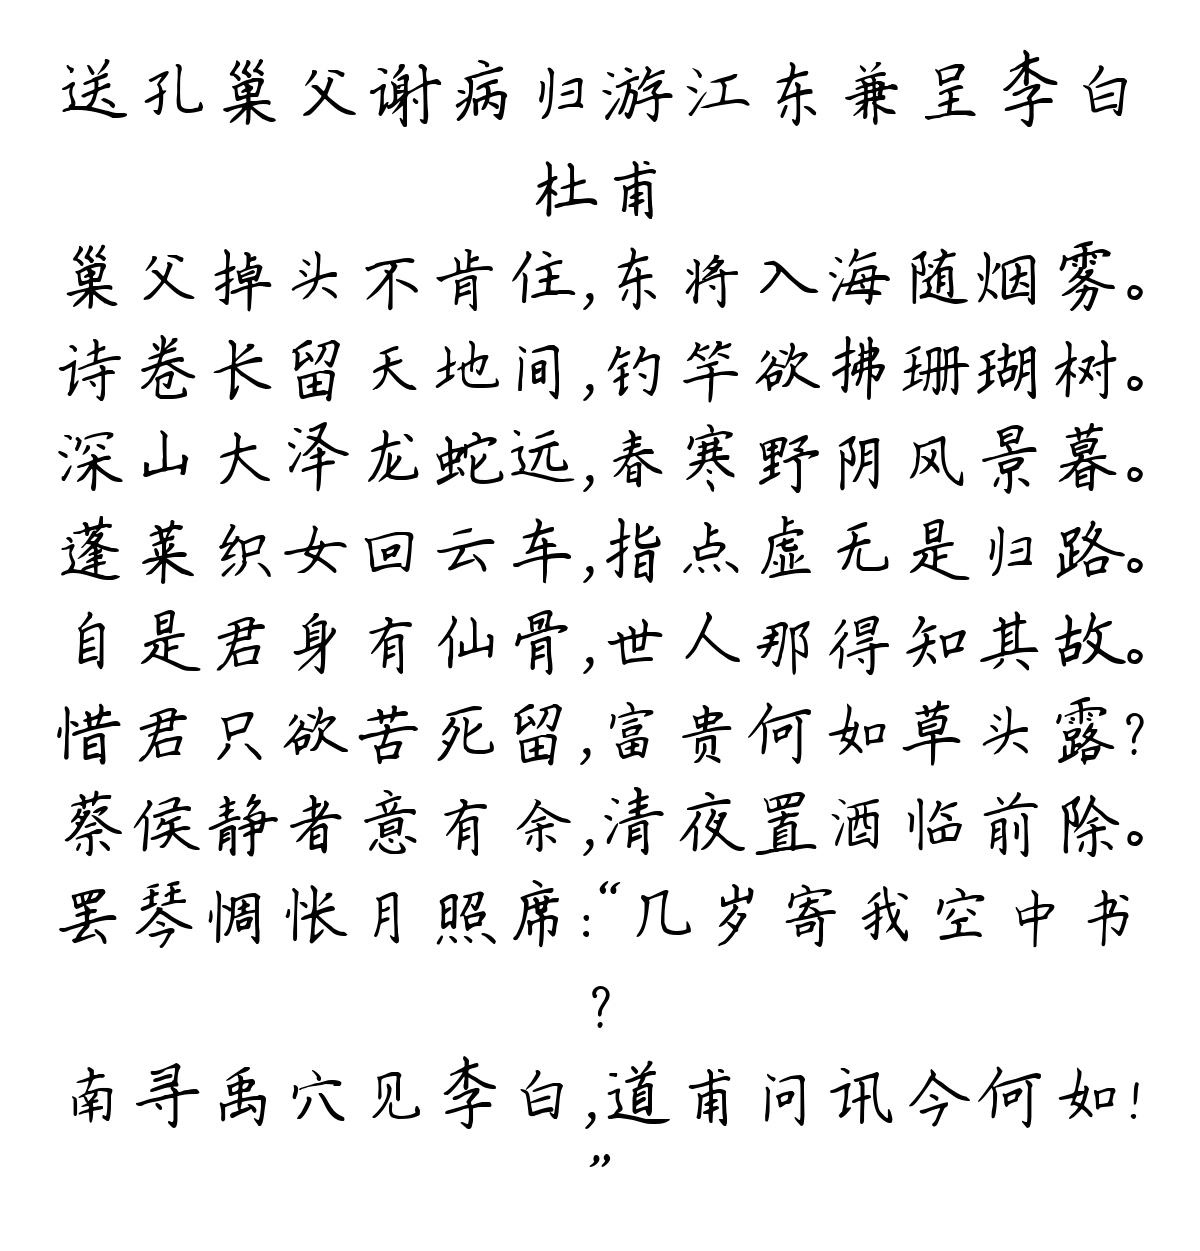 送孔巢父谢病归游江东兼呈李白
杜甫
巢父掉头不肯住,东将入海随烟雾。
诗卷长留天地间,钓竿欲拂珊瑚树。
深山大泽龙蛇远,春寒野阴风景暮。
蓬莱织女回云车,指点虚无是归路。
自是君身有仙骨,世人那得知其故。
惜君只欲苦死留,富贵何如草头露?
蔡侯静者意有余,清夜置酒临前除。
罢琴惆怅月照席:“几岁寄我空中书
?
南寻禹穴见李白,道甫问讯今何如!
”